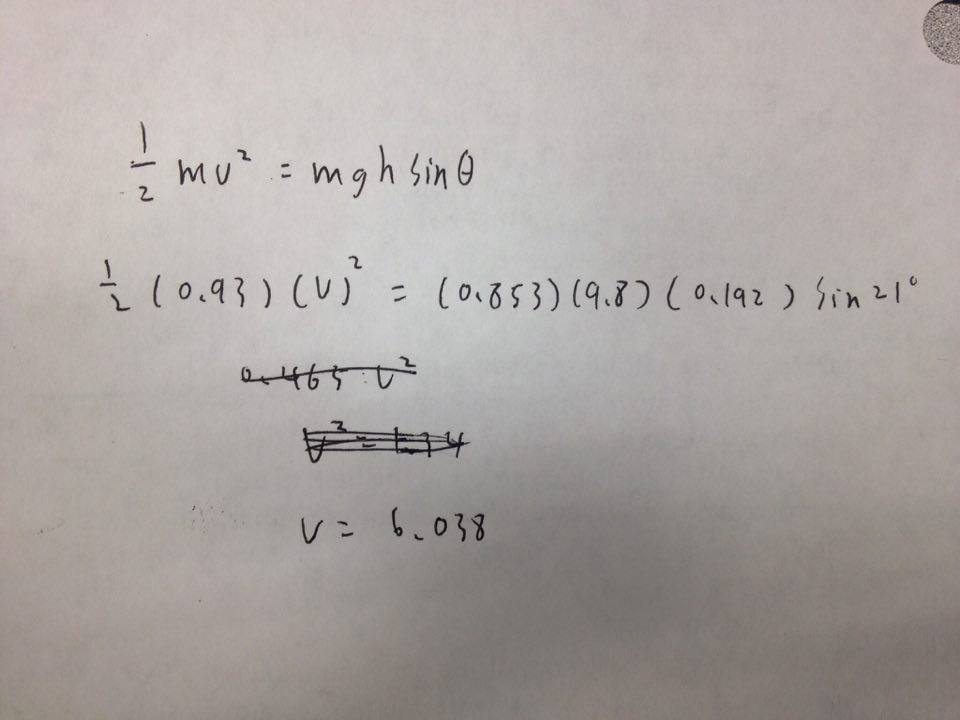 1/2 mv² = mgh sinθ
1/2 (0.93)(v)² = (0.853)(9.8)(0.192) sin21°
0.465 v²
v² =
v = 6.038